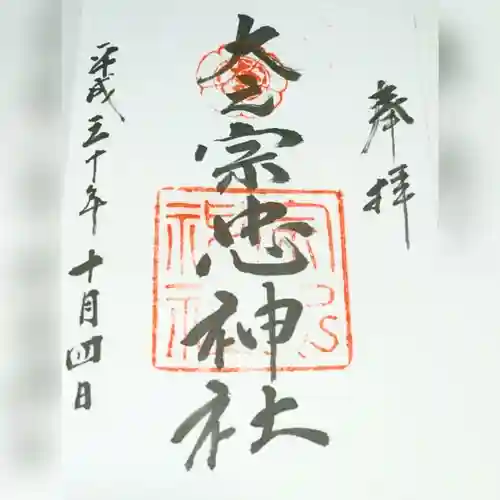 奉拝
大元宗忠神社
平成三十年十月四日